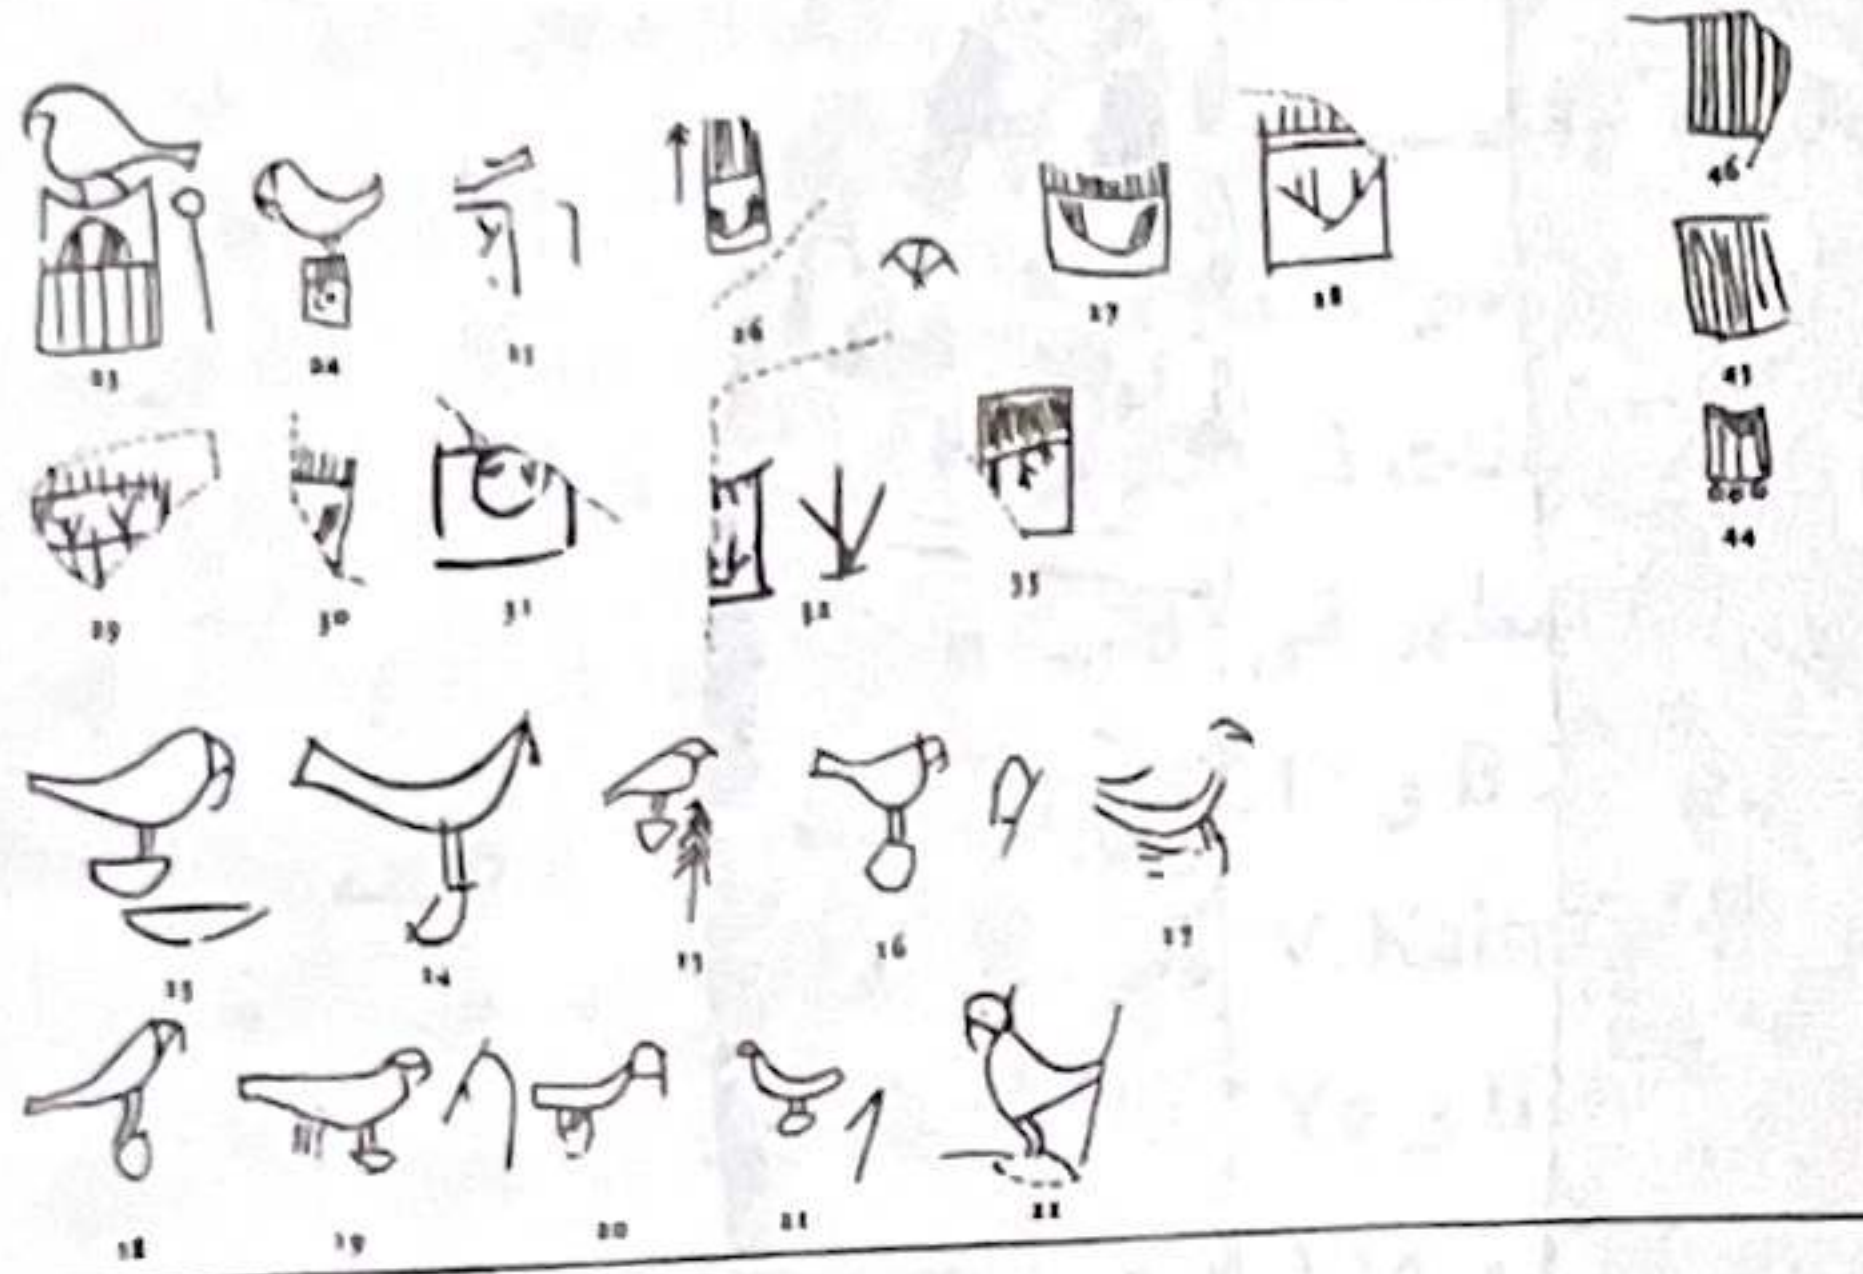 46
23 24 25 26 27 28
45
44
29 30 31 32 33
13 14 15 16 17
18 19 20 21 22